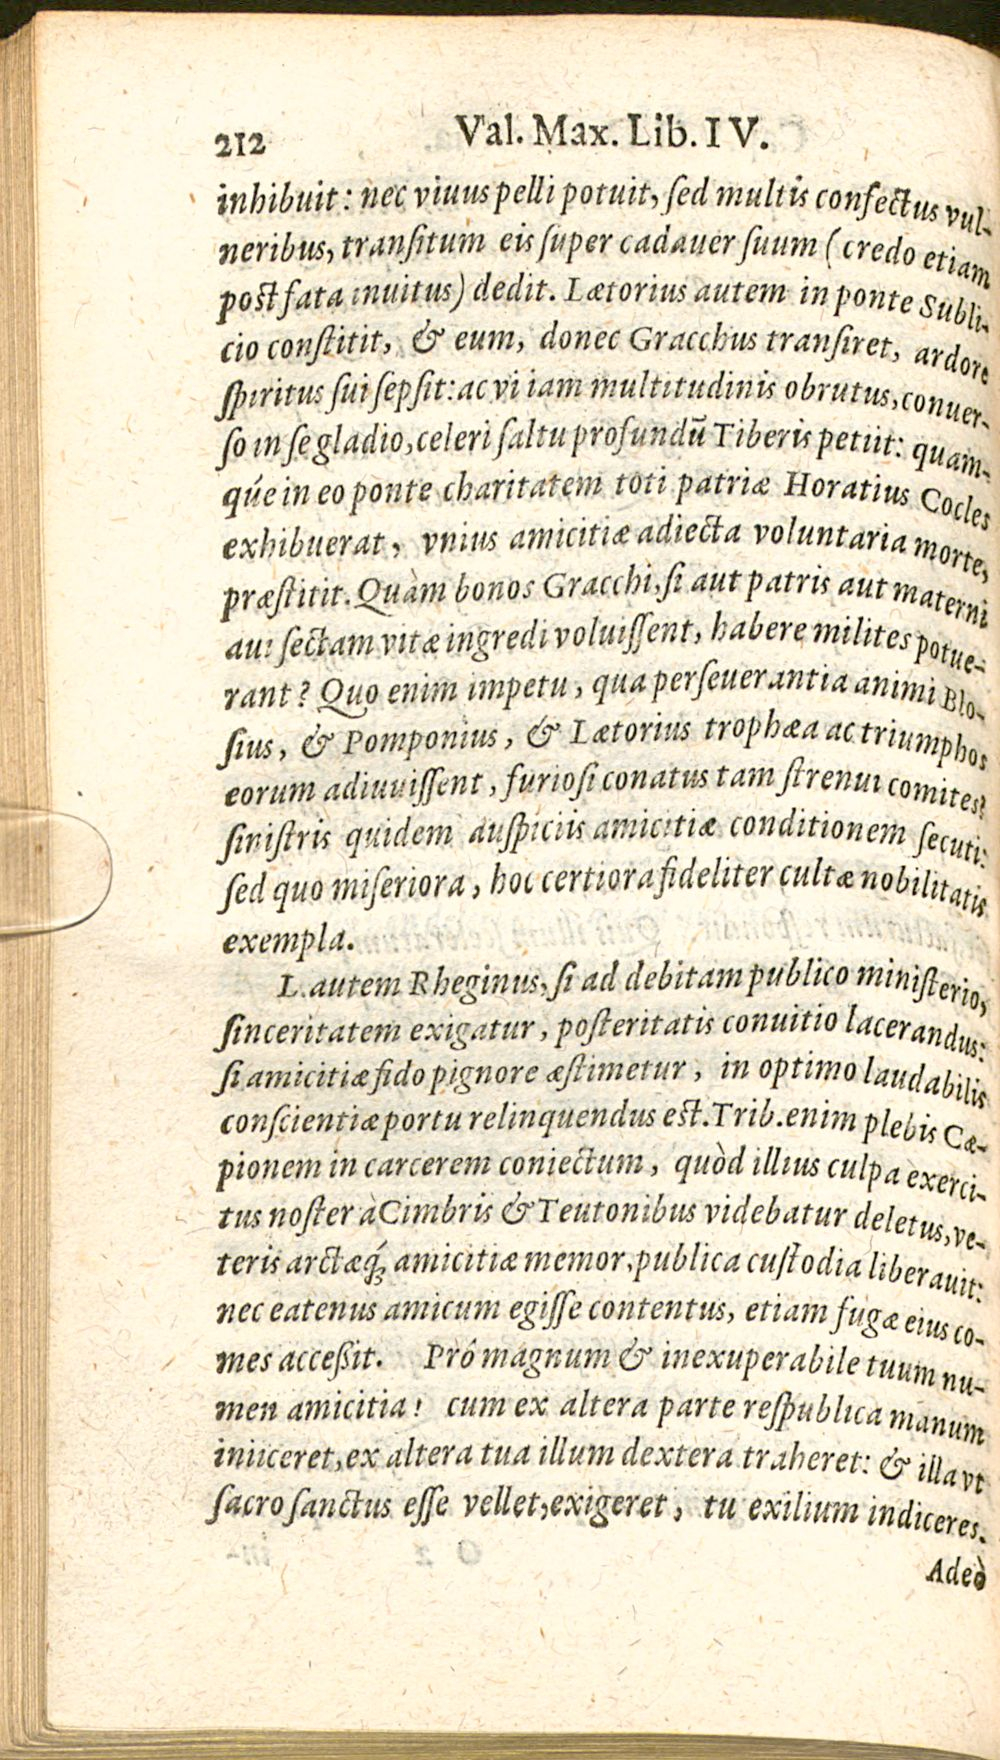 212 Val. Max. Lib. IV.
inhibuit: nec viuus pelli potuit, ſed multis confectus vul-
neribus, tranſitum eis ſuper cadauer ſuum (credo etiam
poſt fata inuitus) dedit. Lætorius autem in ponte Subli-
cio conſtitit, & eum, donec Gracchus tranſiret, ardore
ſpiritus ſui ſepſit: ac vi iam multitudinis obrutus, conuer-
ſo in ſe gladio, celeri ſaltu profundū Tiberis petiit: quam-
qúe in eo ponte charitatem toti patriæ Horatius Cocles
exhibuerat, vnius amicitiæ adiecta voluntaria morte,
præſtitit. Quàm bonos Gracchi, ſi aut patris aut materni
aui ſectam vitæ ingredi voluiſſent, habere milites potue-
rant? Quo enim impetu, qua perſeuerantia animi Blo-
ſius, & Pomponius, & Lætorius trophæa ac triumphos
eorum adiuuiſſent, furioſi conatus tam ſtrenui comites?
ſiniſtris quidem auſpiciis amicitiæ conditionem ſecuti:
ſed quo miſeriora, hoc certiora fideliter cultæ nobilitatis
exempla.
L. autem Rheginus, ſi ad debitam publico miniſterio,
ſinceritatem exigatur, poſteritatis conuitio lacerandus:
ſi amicitiæ fido pignore æſtimetur, in optimo laudabilis
conſcientiæ portu relinquendus eſt. Trib. enim plebis Cæ-
pionem in carcerem coniectum, quòd illius culpa exerci-
tus noſter à Cimbris & Teutonibus videbatur deletus, ve-
teris arctæq́; amicitiæ memor, publica cuſtodia liberauit:
nec eatenus amicum egiſſe contentus, etiam fugæ eius co-
mes acceßit. Prô magnum & inexuperabile tuum nu-
men amicitia! cum ex altera parte reſpublica manum
iniiceret, ex altera tua illum dextera traheret: & illa vt
ſacroſanctus eſſe vellet, exigeret, tu exilium indiceres.
Adeò